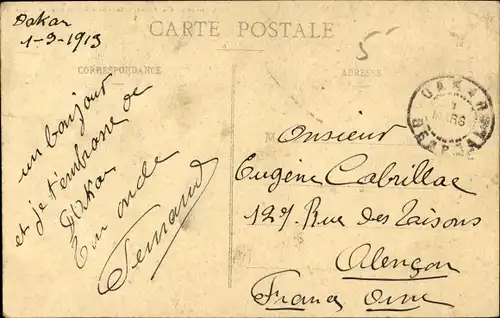 CARTE POSTALE
Dakar
1-3-1913
5
CORRESPONDANCE
ADRESSE
un bonjour
et je t'embrasse de
Dakar
Ton oncle
Fernand
DAKAR
MARS
Monsieur
Eugène Cabrillac
127 Rue des Taisons
Alençon
France Orne